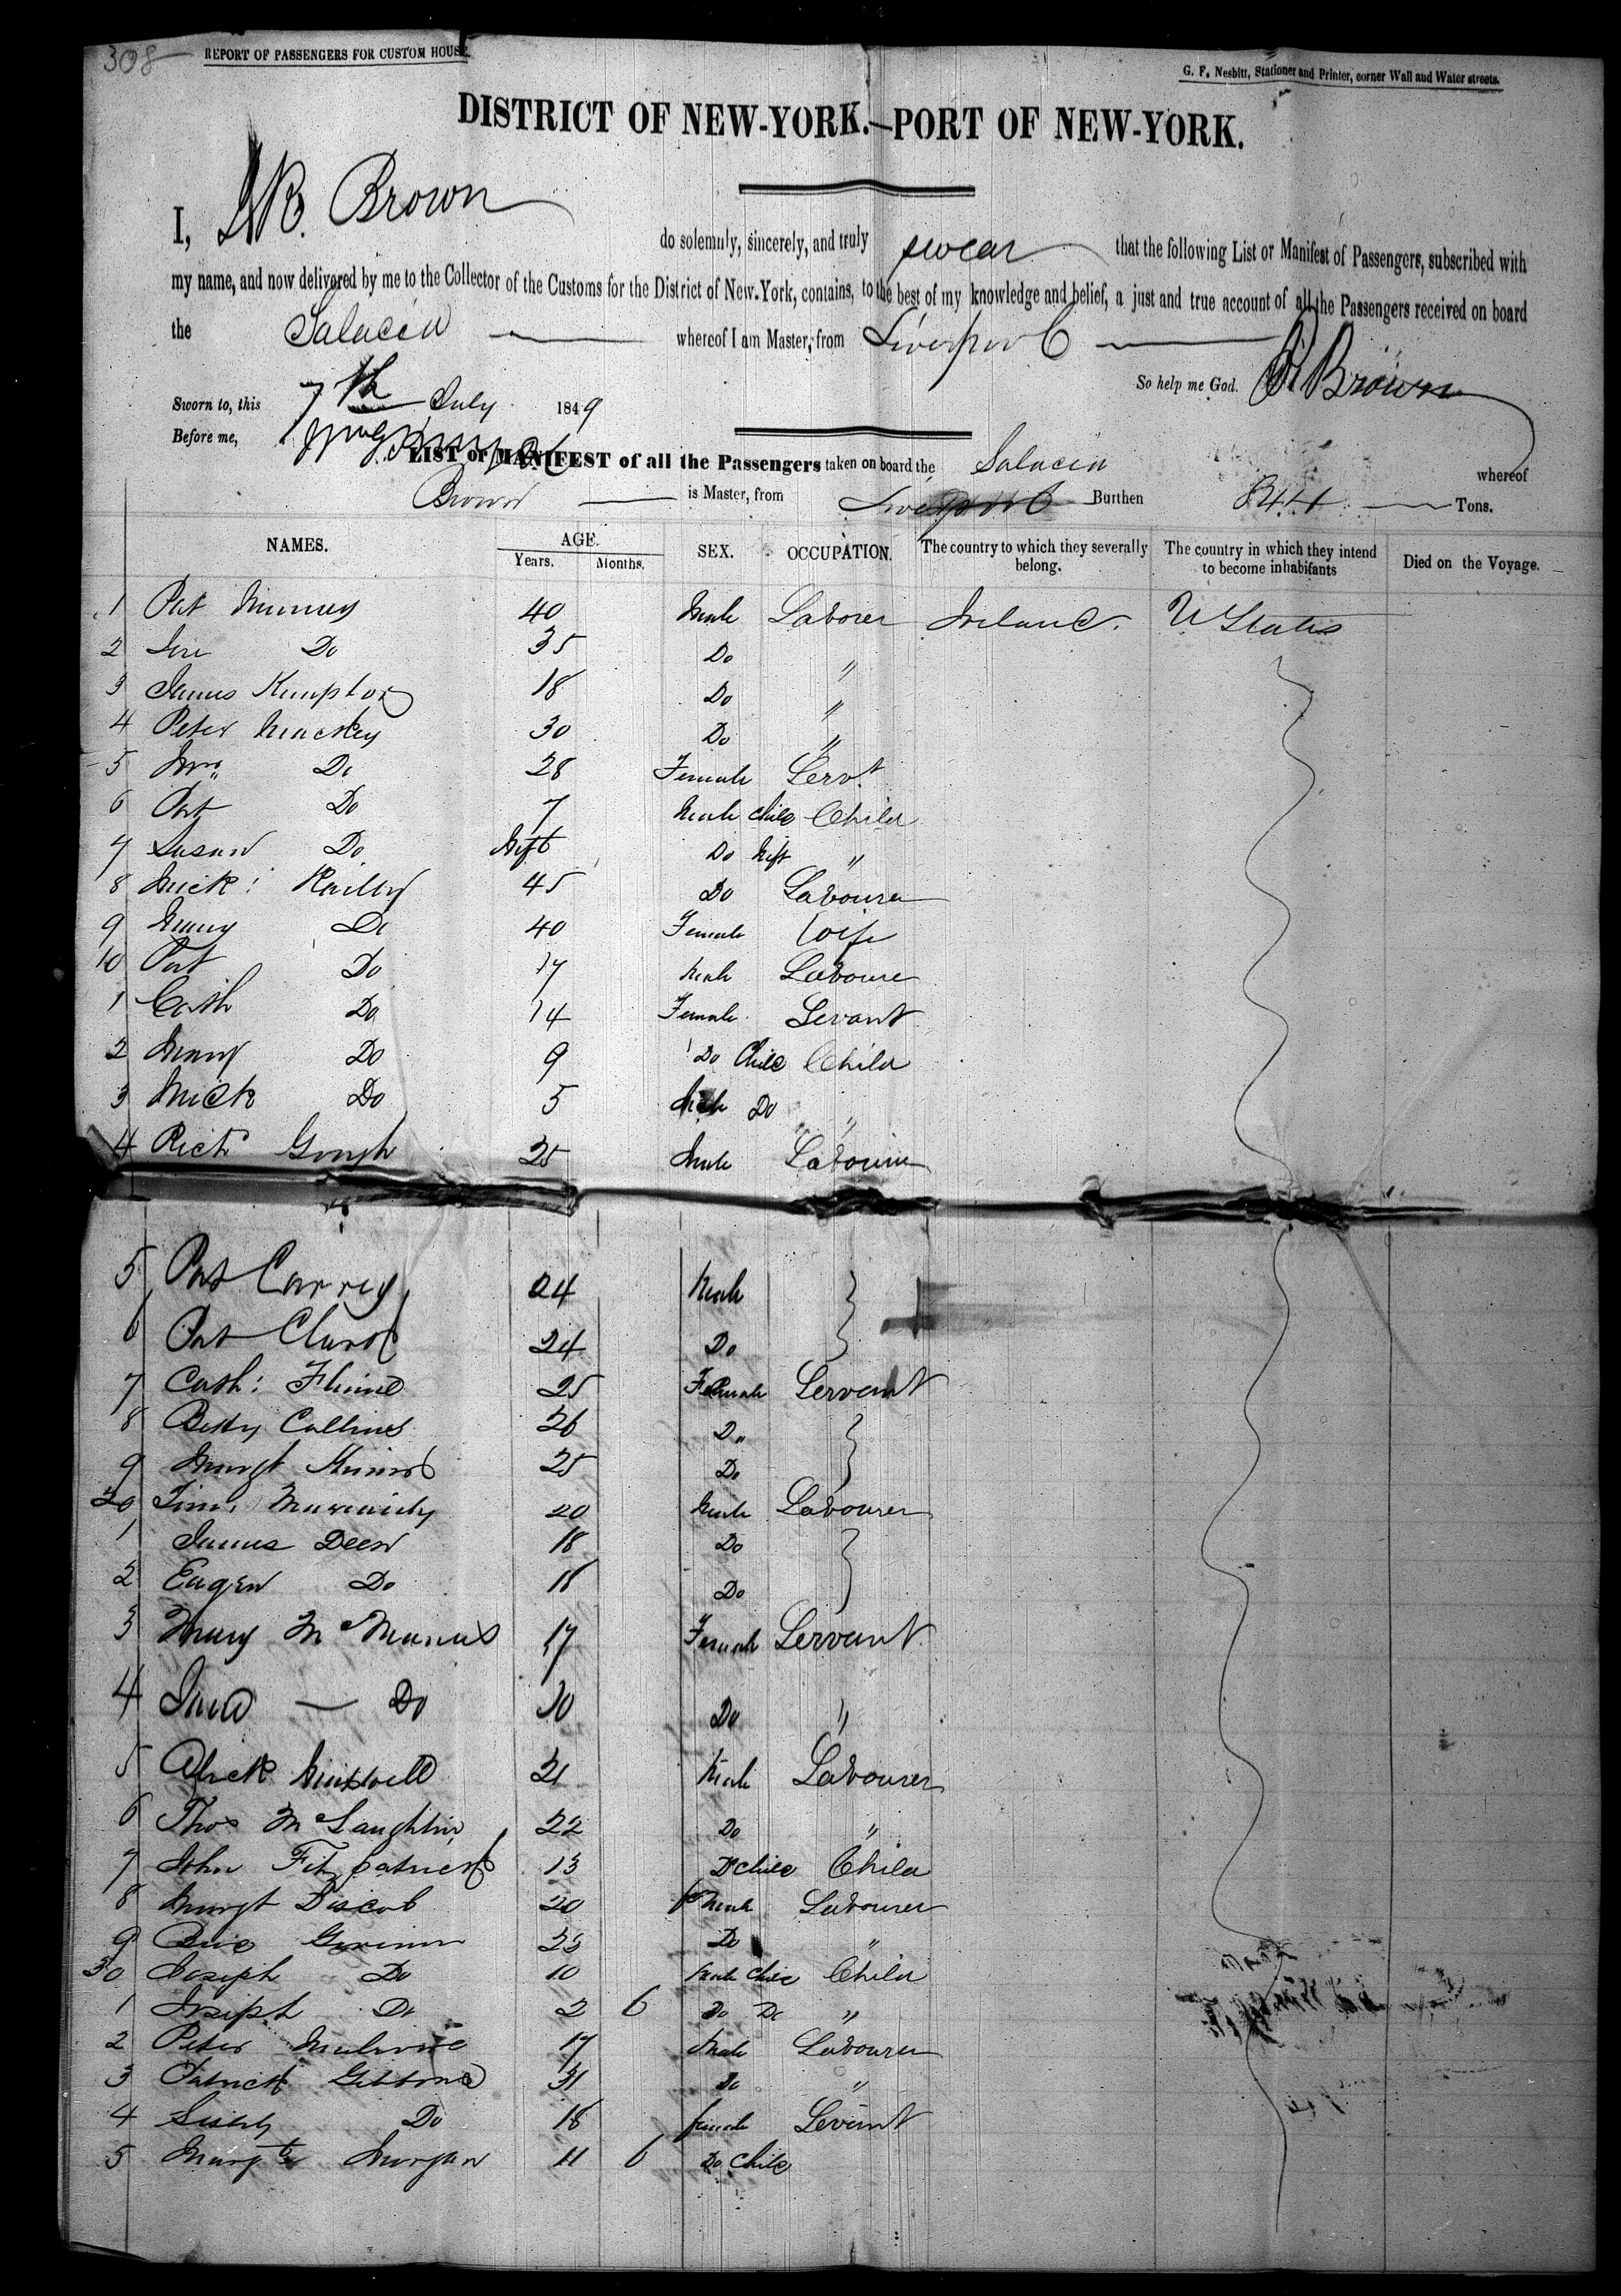 308
REPORT OF PASSENGERS FOR CUSTOM HOUSE.
G. F. Nesbitt, Stationer and Printer, corner Wall and Water streets.
DISTRICT OF NEW-YORK.—PORT OF NEW-YORK.
I, Brown do solemnly, sincerely, and truly swear that the following List or Manifest of Passengers, subscribed with
my name, and now delivered by me to the Collector of the Customs for the District of New-York, contains, to the best of my knowledge and belief, a just and true account of all the Passengers received on board
the Salacia whereof I am Master, from Liverpool
So help me God. Brown
Sworn to, this 7th July 1849
Before me,
LIST or MANIFEST of all the Passengers taken on board the Salacia whereof
Brown is Master, from Liverpool Burthen Tons.
NAMES. AGE. Years. Months. SEX. OCCUPATION. The country to which they severally belong. The country in which they intend to become inhabitants Died on the Voyage.
1 Pat Murray 40 Male Laborer Ireland. U States
2 Do 35 Do "
3 James 18 Do "
4 Peter Mackey 30 Do "
5 Do 28 Female Servt
6 Pat Do 7 Male Child Child
7 Susan Do Inft Do Inft "
8 Mick: Reilly 45 Do Labourer
9 Mary Do 40 Female Wife
10 Pat Do 17 Male Laboure
1 Cath Do 14 Female Servant
2 Mary Do 9 Do Child Child
3 Mick Do 5 Male Do "
4 Richd Gough 25 Male Labourer
5 Pat Carrey 24 Male
6 Pat 24 Do
7 Cath: 25 Female Servant
8 Betty Collins 26 Do
9 Margt 25 Do
20 20 Male Labourer
1 James Deen 18 Do
2 Eugen Do 18 Do
3 Mary McManus 17 Female Servant
4 Do 10 Do "
5 Alick Maxwell 21 Male Labourer
6 Thos McLaughlin 22 Do "
7 John Fitzpatrick 13 Do Child Child
8 Margt 20 Labourer
9 Do "
30 Joseph Do 10 Male Child Child
1 Joseph Do 2 6 Do Do "
2 Peter 17 Male Labourer
3 Patrick Gibbons 31 Do "
4 Do 18 female Servant
5 Margt Morgan 11 6 Do Child